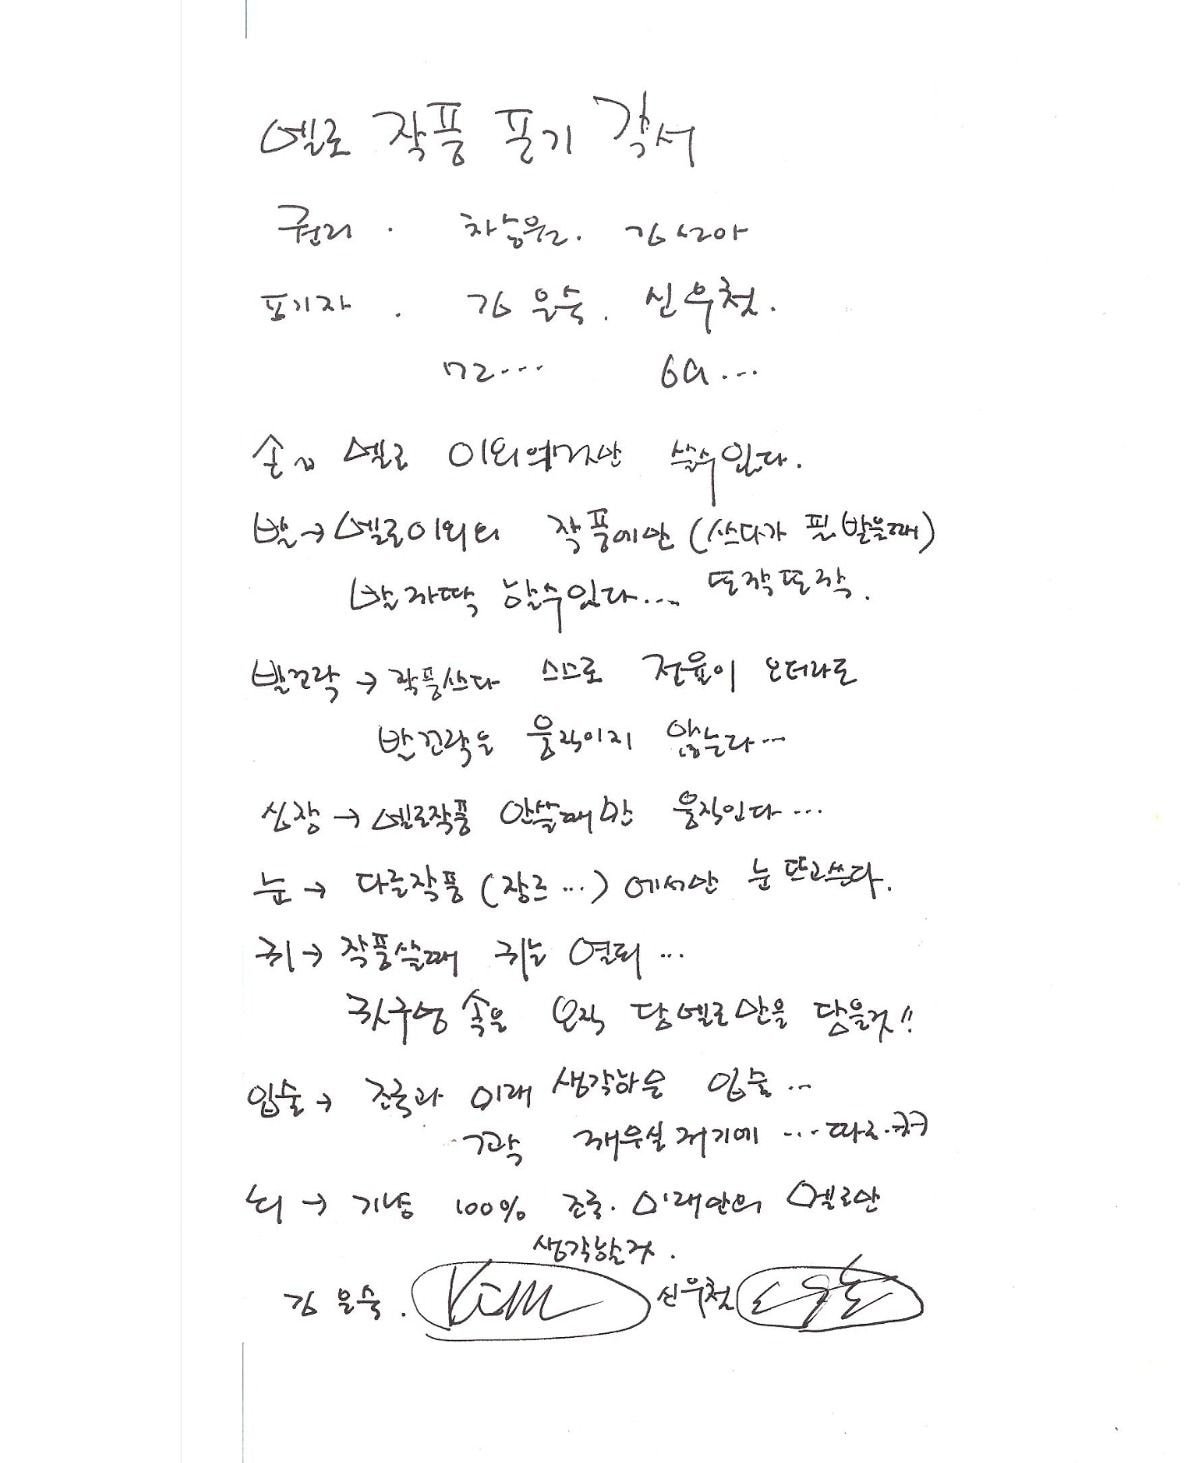 멜로 작품 포기 각서
권리 . 차승원. 김선아
포기자 . 김은숙. 신우철.
72... 69...
손 멜로 이외 여가만 쓸수있다.
발→ 멜로이외의 작품에만 (쓰다가 필 받을때)
발까딱 할수있다... 또각또각.
발꼬락 → 작품쓰다 스스로 전율이 오더라도
발꼬락을 움직이지 않는다...
심장 → 멜로작품 안쓸때만 움직인다...
눈 → 다른작품 (장르...) 에서만 눈 뜨고쓰다.
귀 → 작품쓸때 귀는 열되...
귓구멍 속을 오직 당멜로만을 담을것!!
입술 → 조국과 미래 생각하는 입술...
꼭 깨무실 거기에 ...
뇌 → 기냥 100% 조국. 미래만의 멜로만
생각할것.
김은숙. Kim 신우철